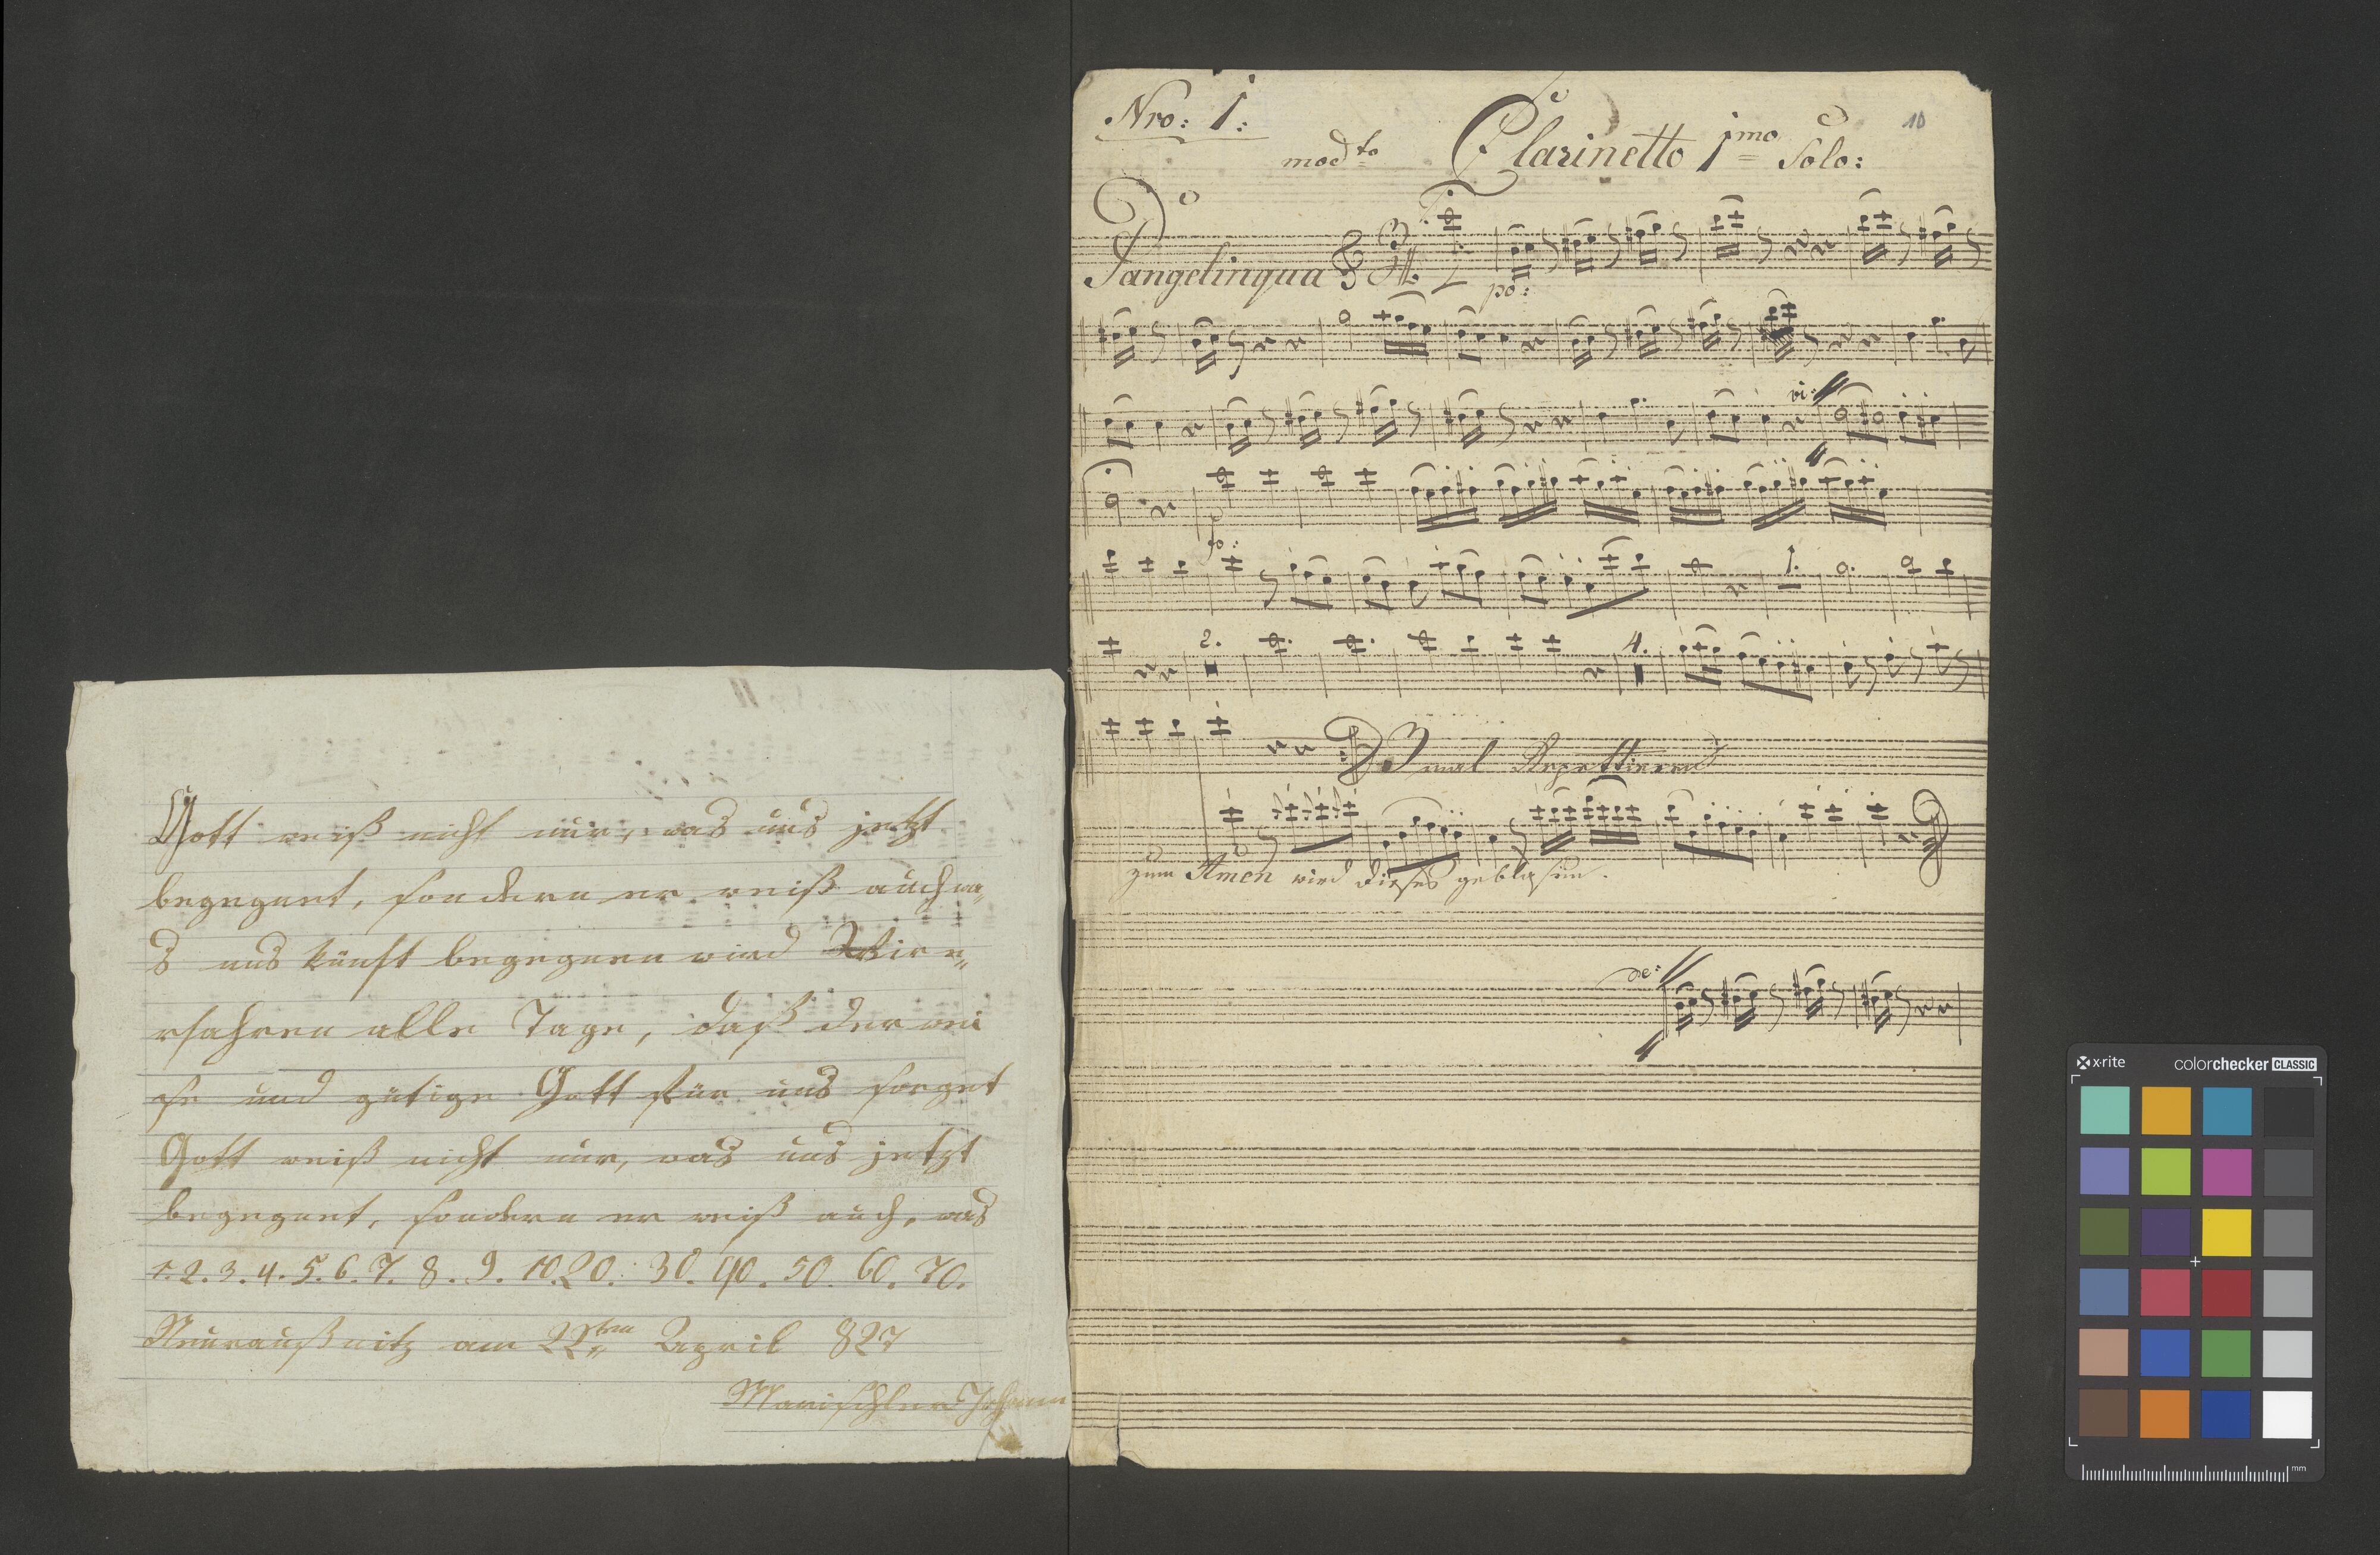 Gott weiß nicht nur, was uns jetzt
begegnet, sondern er weiß auch wa„
s uns künft begegnen wird Wir e„
rfahren alle Tage, daß der wei
se und gütige Gott für uns sorget
Gott weiß nicht nur, was uns jetzt
begegnet, sondern er weiß auch, was
1. 2. 3. 4. 5. 6. 7. 8. 9. 10. 20. 30. 40. 50. 60. 70.
Neuraußnitz am 22ten April 827
Johann
Nro: 1:
10
modto Clarinetto 1mo Solo:
Pangelinqua
po:
vi:
fo:
1.
2.
4.
3 mal Repettirend
zum Amen wird dieses geblasen.
de:
x-rite colorchecker CLASSIC
mm